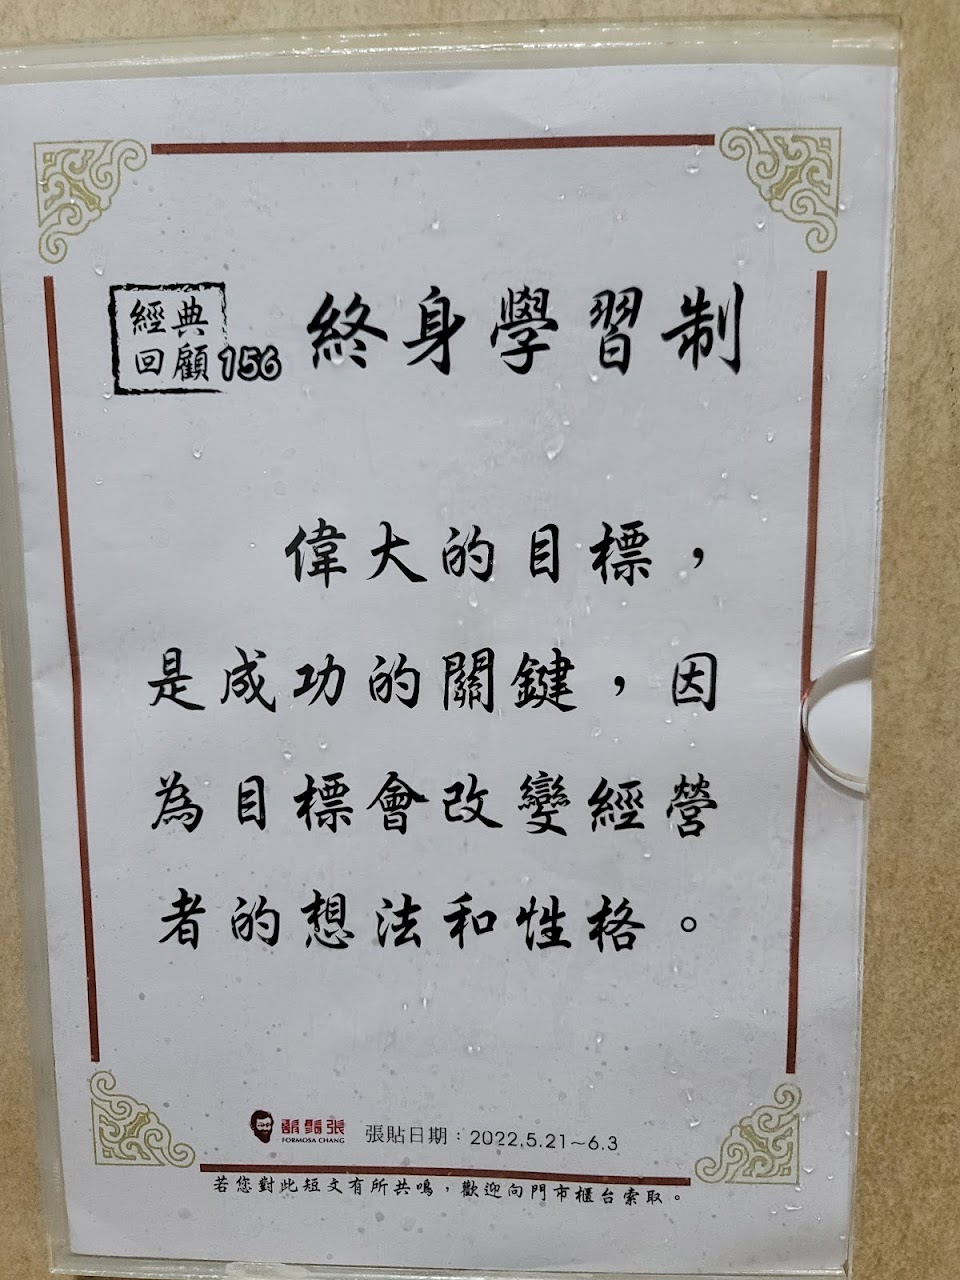 經典
回顧156
終身學習制
偉大的目標，
是成功的關鍵，因
為目標會改變經營
者的想法和性格。
鬍鬚張
FORMOSA CHANG
張貼日期：2022.5.21~6.3
若您對此短文有所共鳴，歡迎向門市櫃台索取。